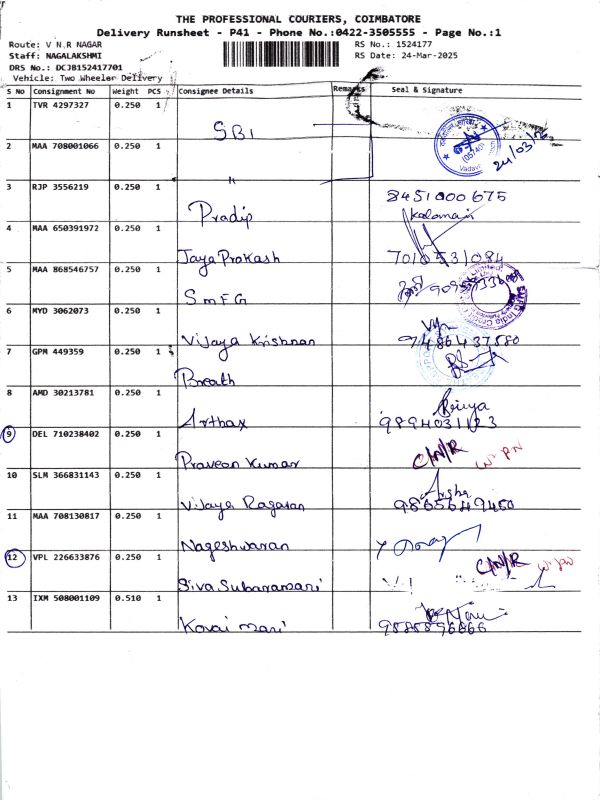 THE PROFESSIONAL COURIERS, COIMBATORE
Delivery Runsheet - P41 - Phone No.:0422-3505555 - Page No.:1
Route: V N.R NAGAR RS No.: 1524177
Staff: NAGALAKSHMI RS Date: 24-Mar-2025
DRS No.: DCJB152417701
Vehicle: Two Wheeler Delivery
S No Consignment No Weight PCS Consignee Details Remarks Seal & Signature
1 TVR 4297327 0.250 1 SBI
2 MAA 708001066 0.250 1 " 24/03/25
3 RJP 3556219 0.250 1 Pradip 8451000675
4 MAA 650391972 0.250 1 Jaya Prakash 7010531084
5 MAA 868546757 0.250 1 SMFG
6 MYD 3062073 0.250 1 Vijaya Krishnan 9486437580
7 GPM 449359 0.250 1 Breath
8 AMD 30213781 0.250 1 Arthax 9894031123
9 DEL 710238402 0.250 1 Praveen Kumar C/N/R
10 SLM 366831143 0.250 1 Vijaya Ragavan Arsha 9865649450
11 MAA 708130817 0.250 1 Nageshwaran
12 VPL 226633876 0.250 1 Siva Subaramani C/N/R
13 IXM 508001109 0.510 1 Kovai mani 9585896666